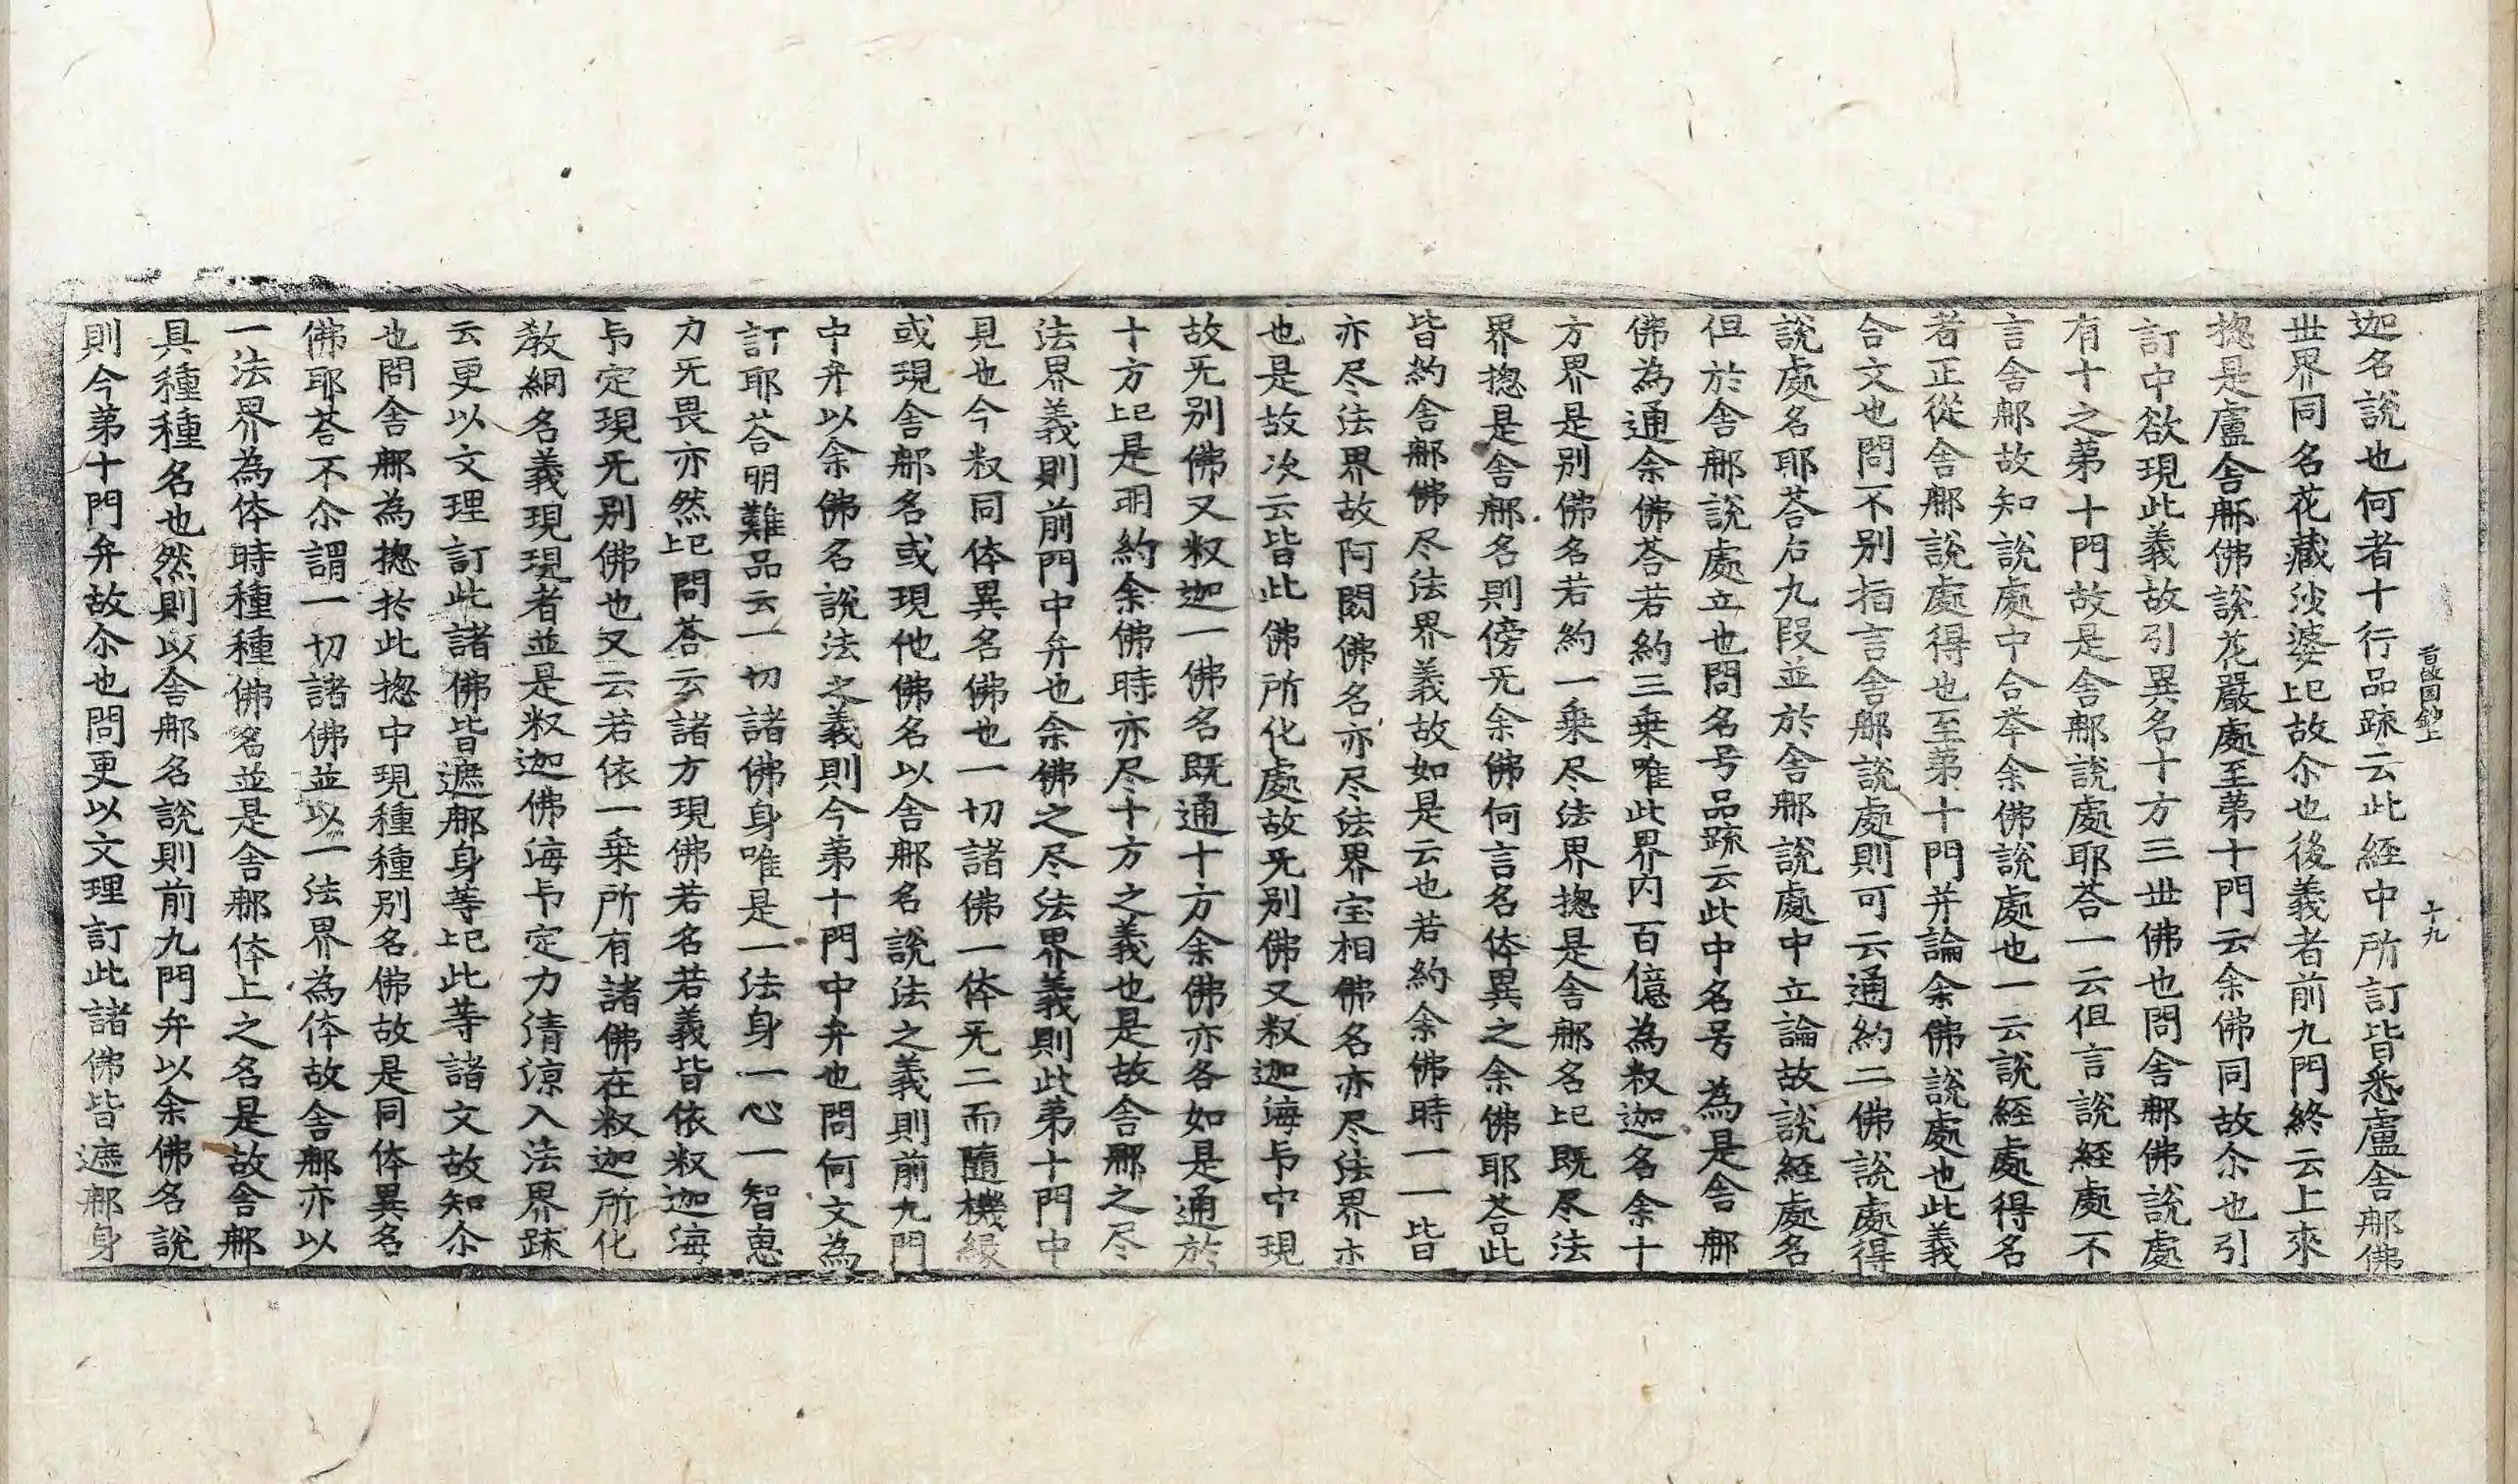 旨皈圓鈔上　十九
迦名說也何者十行品踈云此経中所訂皆悉盧舍䣬佛
世界同名花藏沙婆妑故尒也後義者前九門終云上來
揔是盧舍䣬佛說花嚴處至苐十門云余佛同故尒也引
訂中欲現此義故引異名十方三世佛也問舍䣬佛說處
有十之苐十門故是舍䣬說處耶荅一云伹言說経處不
言舍䣬故知說處中合举余佛說處也一云說経處得名
者正從舍䣬說處得也至苐十門并論余佛說處也此義
合文也問不别指言舍䣬說處則可云通約二佛說處得
說處名耶荅右九段並於舍䣬說處中立論故說経處名
伹於舍䣬說處立也問名号品踈云此中名号為是舍䣬
佛為通余佛荅若約三乗唯此界内百億為釈迦名余十
方界是别佛名若約一乗尽法界揔是舍䣬名妑既尽法
界揔是舍䣬名則傍旡余佛何言名体異之余佛耶荅此
皆約舍䣬佛尽法界義故如是云也若約余佛時一一皆
亦尽法界故阿閦佛名亦尽法界宝相佛名亦尽法界亦
也是故次云皆此佛所化處故旡别佛又釈迦海卐中現
故旡别佛又釈迦一佛名既通十方余佛亦各如是通於
十方妑是明約余佛時亦尽十方之義也是故舍䣬之尽
法界義則前門中弁也余佛之尽法界義則此苐十門中
見也今釈同体異名佛也一切諸佛一体旡二而隨機緣
或現舍䣬名或現他佛名以舍䣬名說法之義則前九門
中弁以余佛名說法之義則今苐十門中弁也問何文為
訂耶荅明難品云一切諸佛身唯是一法身一心一智恵
力旡畏亦然妑問荅云諸方現佛若名若義皆依釈迦海
卐定現旡别佛也又云若依一乗所有諸佛在釈迦所化
教網名義現現者並是釈迦佛海卐定力清涼入法界踈
云更以文理訂此諸佛皆遮䣬身等妑此等諸文故知尒
也問舍䣬為揔於此揔中現種種别名佛故是同体異名
佛耶荅不尒謂一切諸佛並以一法界為体故舍䣬亦以
一法界為体時種種佛名並是舍䣬体上之名是故舍䣬
具種種名也然則以舍䣬名說則前九門弁以余佛名說
則今苐十門弁故尒也問更以文理訂此諸佛皆遮䣬身